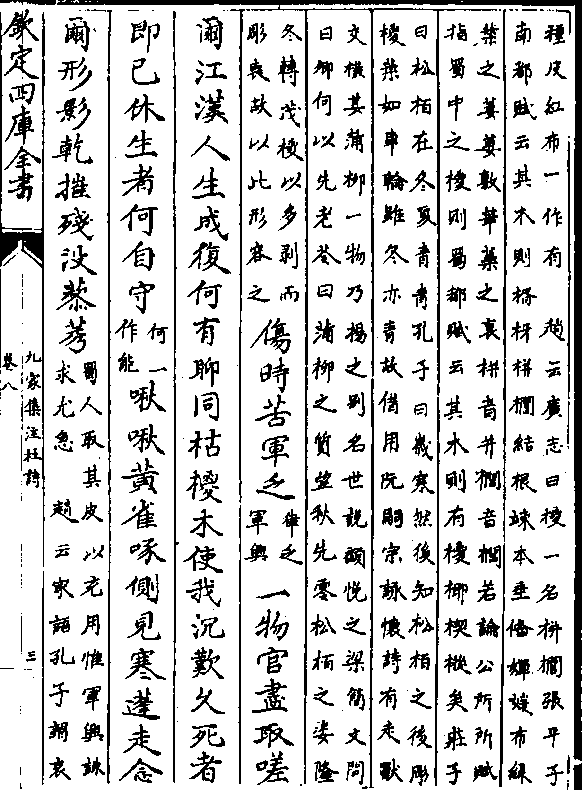 種皮紅布一作有　趙云廣志曰椶一名栟櫚張平子
南都賦云其木則楈枒栟櫚結根竦本垂條嬋媛布綠
葉之萋萋敷華蘂之蓑栟音并櫚音櫚若論公所所賦
指蜀中之椶則蜀都賦云其木則有椶枒楔樅矣莊子
曰松栢在冬夏青青孔子曰歲寒然後知松柏之後彫
椶葉如車輪雖冬亦青故借用阮嗣宗詠懷詩有走獸
交橫其蒲柳一物乃楊之別名世說顧悅之梁簡文問
曰卿何以先老荅曰蒲柳之質望秋先零松栢之姿隆
冬轉茂椶以多剥而
彫喪故以此形容之
傷時苦軍乏
律乏
軍興
一物官盡取嗟
爾江漢人生成復何有聊同枯椶木使我沉歎久死者
即已休生者何自守
何一
作能
啾啾黃雀啄側見寒蓬走念
爾形影乾摧殘没藜莠
蜀人取其皮以充用惟軍興誅
求尤急　趙云家語孔子謂哀
欽定四庫全書
九家集注杜詩
卷八
三